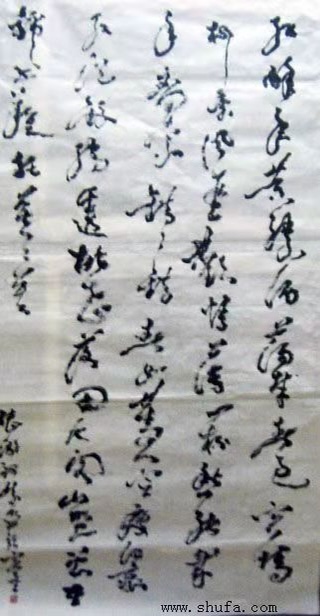 红酥手黄縢酒满城春色宫墙
柳东风恶欢情薄一怀愁绪几
年离索错々错春如旧人空瘦泪痕
红浥鲛绡透桃花落闲池阁山盟虽在
锦书难托莫々莫
www.shufa.com